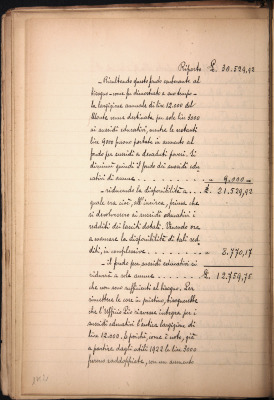 Riporto £. 30.529,92
- Risultando questo fondo esuberante al
bisogno - come fu dimostrato a suo tempo -
la largizione annuale di lire 12.000 del
Monte venne destinata per sole lire 3000
ai sussidi educativi, mentre le restanti
lire 9000 furono portate in aumento al
fondo per sussidi a decaduti poveri. Si
diminuì quindi il fondo dei sussidi edu-
cativi di annue - - - - - - - " 9.000 -
- riducendo la disponibilità a - - £. 21.529,92
quale era cioè, all'incirca, prima che
si devolvessero ai sussidi educativi i
redditi dei lasciti dotali. Venendo ora
a mancare la disponibilità di tali red-
diti, in complessive - - - - - " 8.770,17
- il fondo per sussidi educativi si
ridurrà a sole annue - - - - - £. 12.759,75
che non sono sufficienti al bisogno. Per
rimettere le cose in pristino, bisognerebbe
che l'Ufficio Pio riavesse integra per i
sussidi educativi l'antica largizione di
lire 12.000. E poichè, come è noto, già
a partire dagli utili 1922 le lire 3000
furono raddoppiate, con un aumento